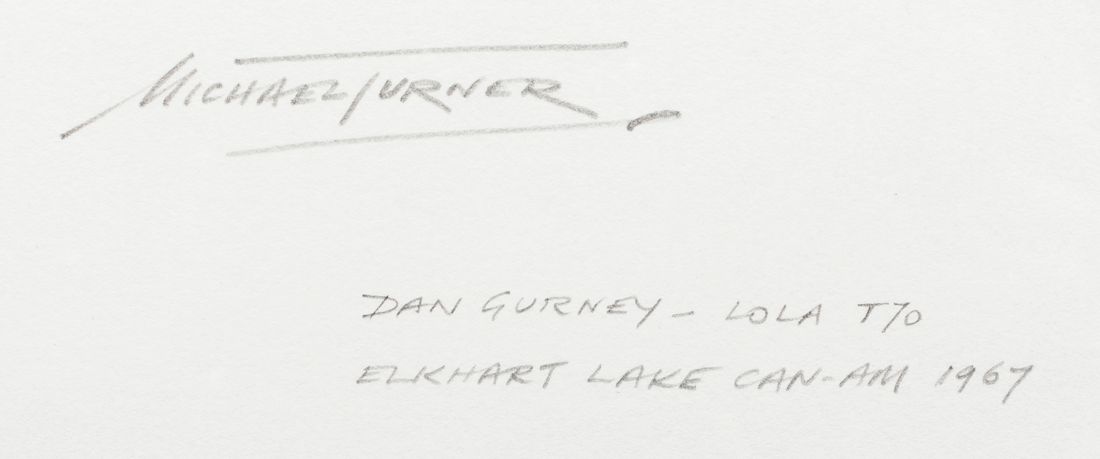 MICHAEL TURNER
DAN GURNEY - LOLA T70
ELKHART LAKE CAN-AM 1967